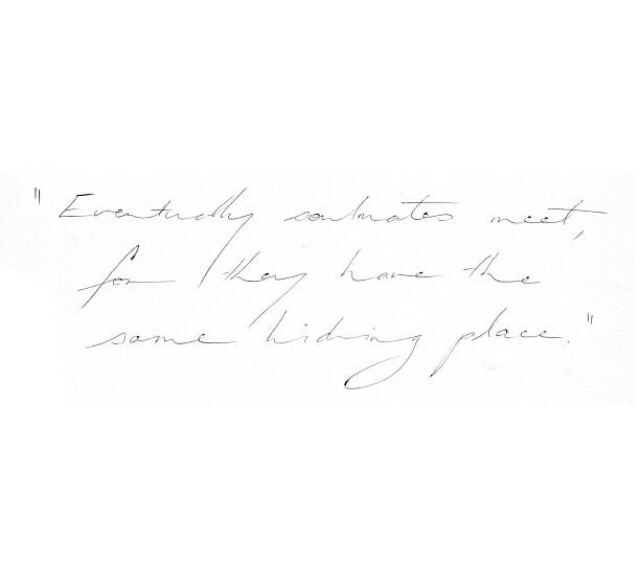 "Eventually soulmates meet,
for they have the
same hiding place."